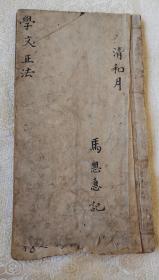 清和月
學文正法
馬思惠記